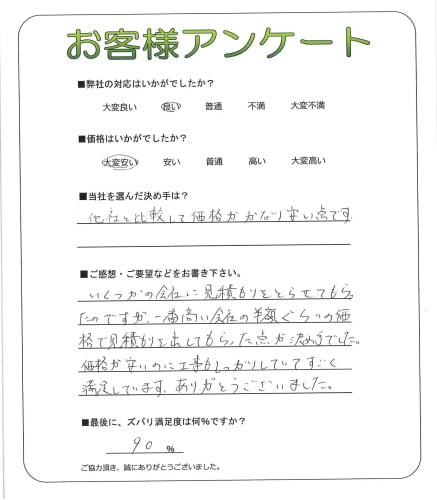 お客様アンケート
■弊社の対応はいかがでしたか？
大変良い 良い 普通 不満 大変不満
■価格はいかがでしたか？
大変安い 安い 普通 高い 大変高い
■当社を選んだ決め手は？
他社と比較して価格がかなり安い点です
■ご感想・ご要望などをお書き下さい。
いくつかの会社に見積もりをとらせてもらっ
たのですが、一番高い会社の半額ぐらいの価
格で見積もりを出してもらった点が決め手でした。
価格が安いのに工事がしっかりしていてすごく
満足しています。ありがとうございました。
■最後に、ズバリ満足度は何％ですか？
90 %
ご協力頂き、誠にありがとうございました。